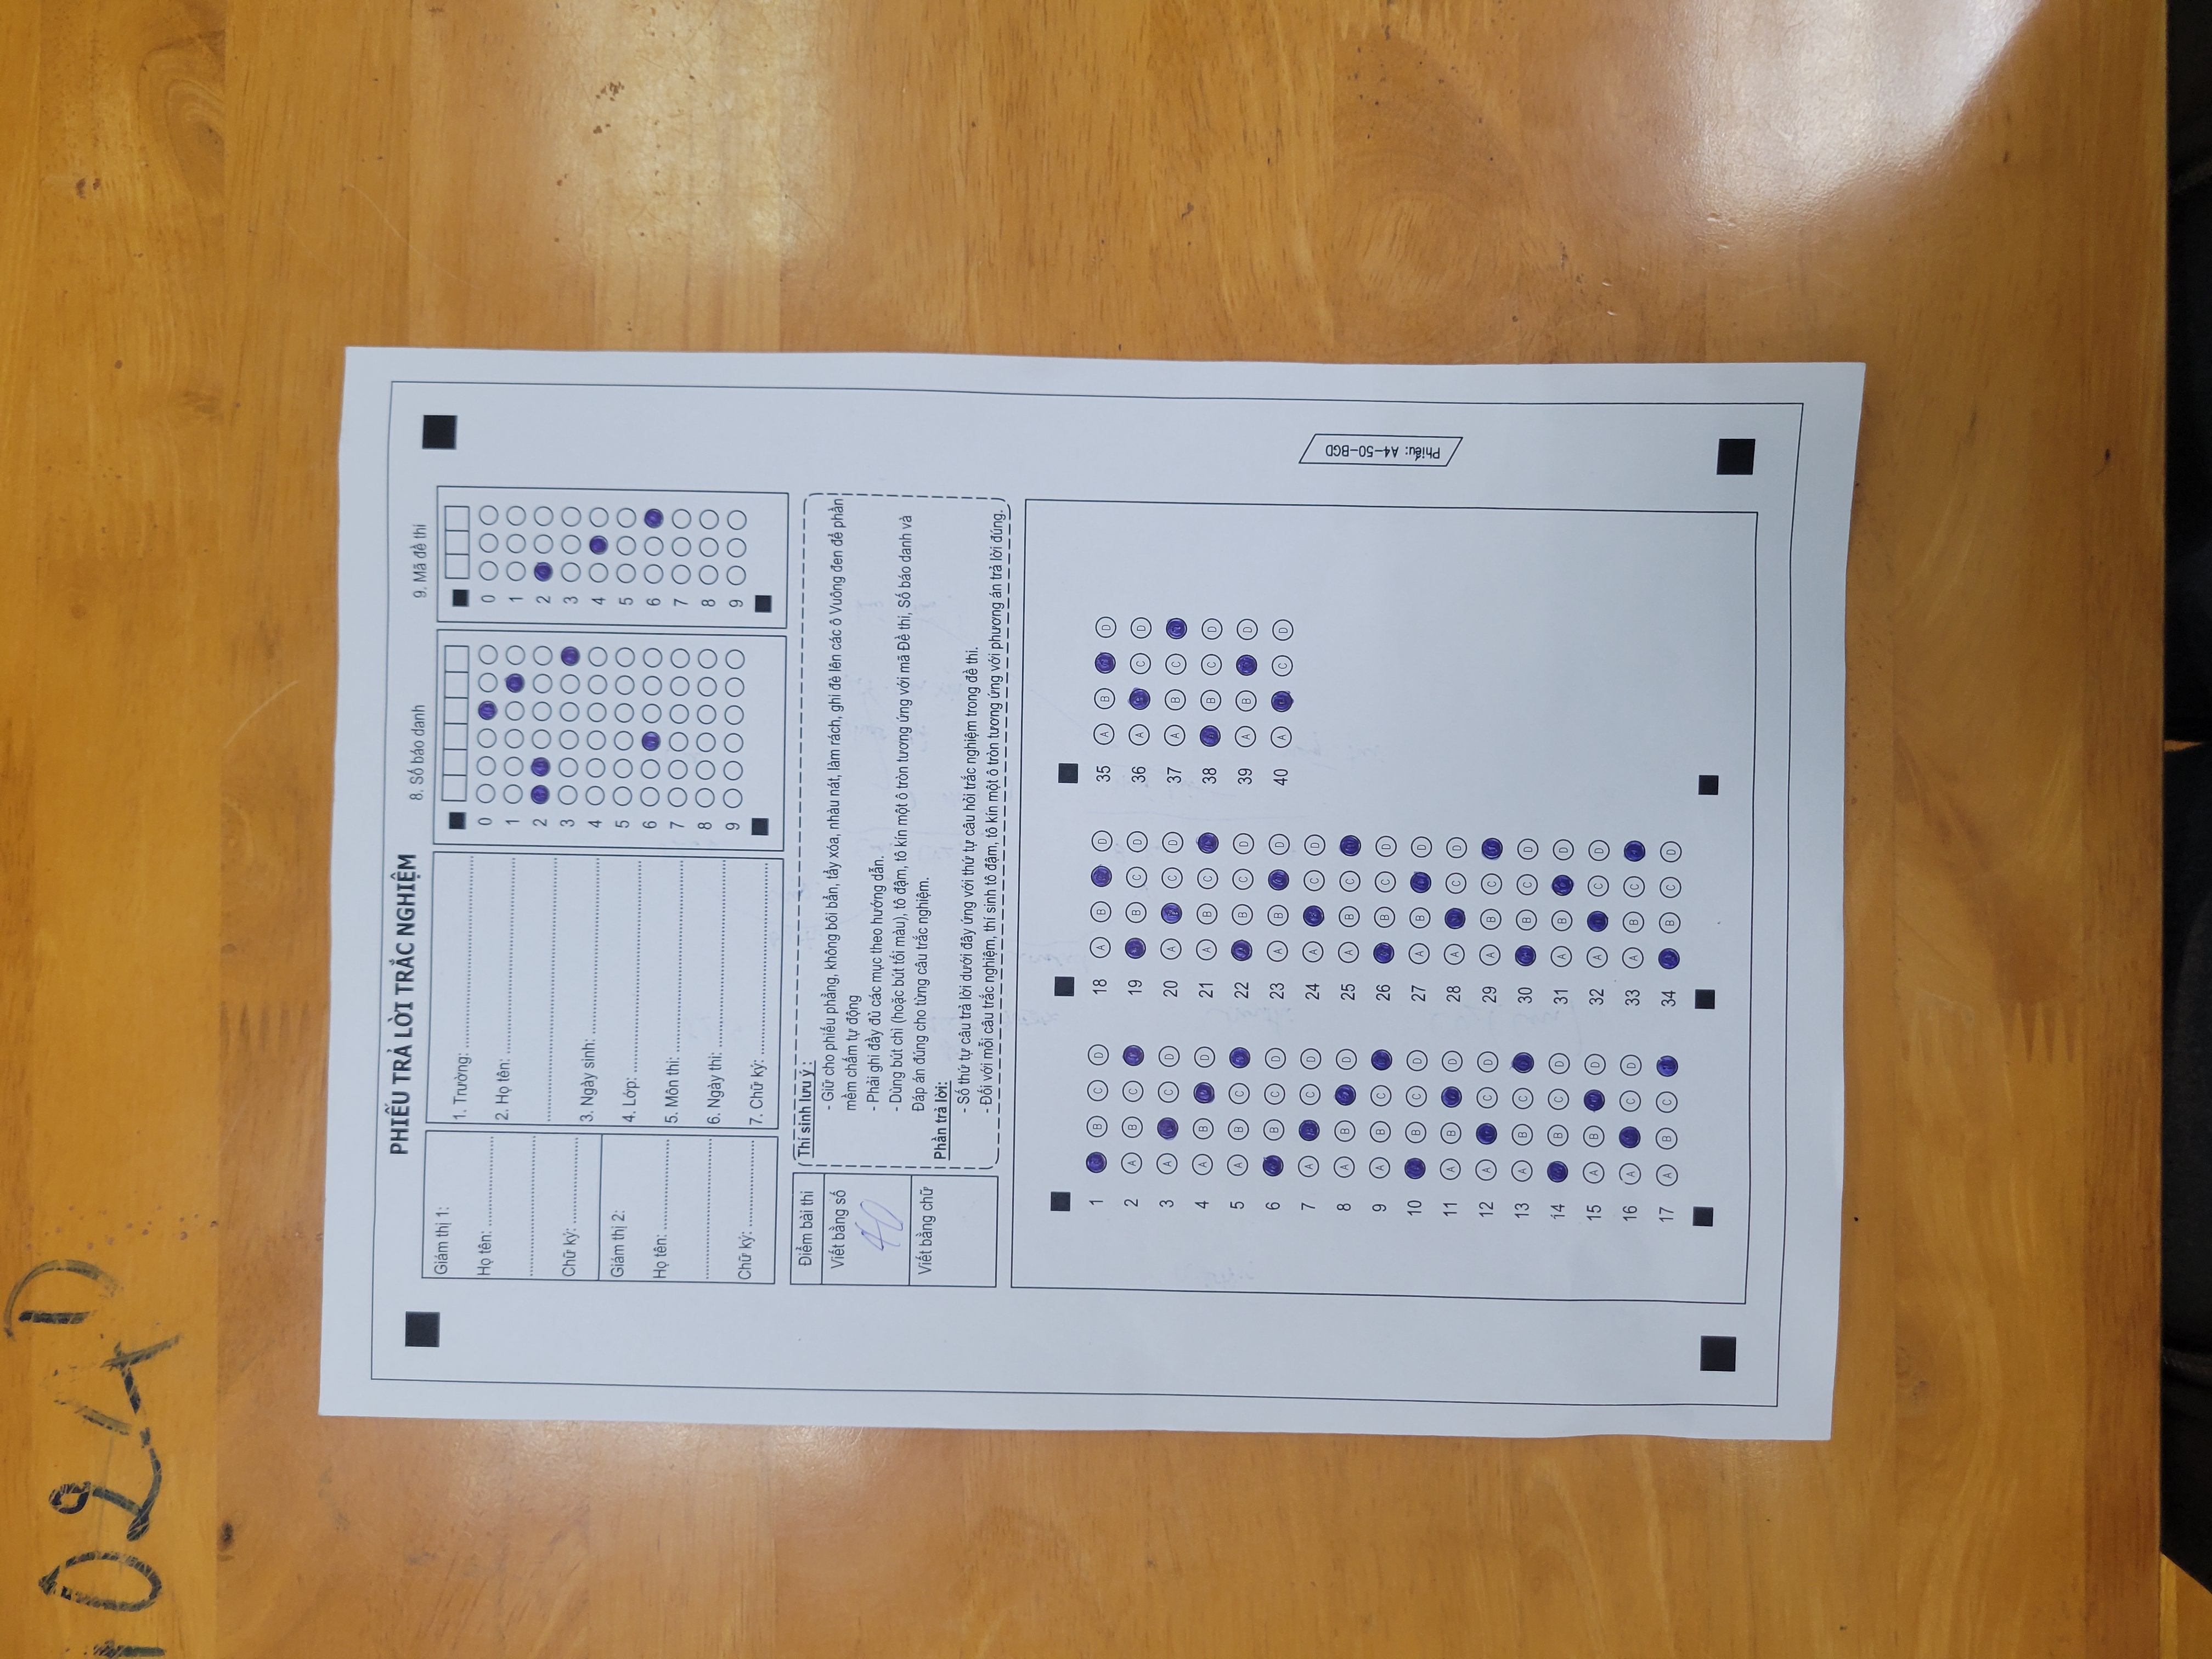 1024D
PHIẾU TRẢ LỜI TRẮC NGHIỆM
Giám thị 1:
Họ tên:
Chữ ký:
Giám thị 2:
Họ tên:
Chữ ký:
1. Trường:
2. Họ tên:
3. Ngày sinh:
4. Lớp:
5. Môn thi:
6. Ngày thi:
7. Chữ ký:
8. Số báo danh
0
1
2
3
4
5
6
7
8
9
9. Mã đề thi
0
1
2
3
4
5
6
7
8
9
Điểm bài thi
Viết bằng số
40
Viết bằng chữ
Thí sinh lưu ý :
- Giữ cho phiếu phẳng, không bôi bẩn, tẩy xóa, nhàu nát, làm rách, ghi đè lên các ô Vuông đen để phần
mềm chấm tự động
- Phải ghi đầy đủ các mục theo hướng dẫn.
- Dùng bút chì (hoặc bút tối màu), tô đậm, tô kín một ô tròn tương ứng với mã Đề thi, Số báo danh và
Đáp án đúng cho từng câu trắc nghiệm.
Phần trả lời:
- Số thứ tự câu trả lời dưới đây ứng với thứ tự câu hỏi trắc nghiệm trong đề thi.
- Đối với mỗi câu trắc nghiệm, thí sinh tô đậm, tô kín một ô tròn tương ứng với phương án trả lời đúng.
1 B C D
2 A B C
3 A C D
4 A B D
5 A B C
6 B C D
7 A C D
8 A B D
9 A B C
10 B C D
11 A B D
12 A C D
13 A B C
14 B C D
15 A B D
16 A C D
17 A B C
18 A B D
19 B C D
20 A C D
21 A B C
22 B C D
23 A B D
24 A C D
25 A B C
26 B C D
27 A B D
28 A C D
29 A B C
30 B C D
31 A B D
32 A C D
33 A B C
34 B C D
35 A B D
36 A C D
37 A B C
38 B C D
39 A B D
40 A C D
Phiếu: A4-50-BGD